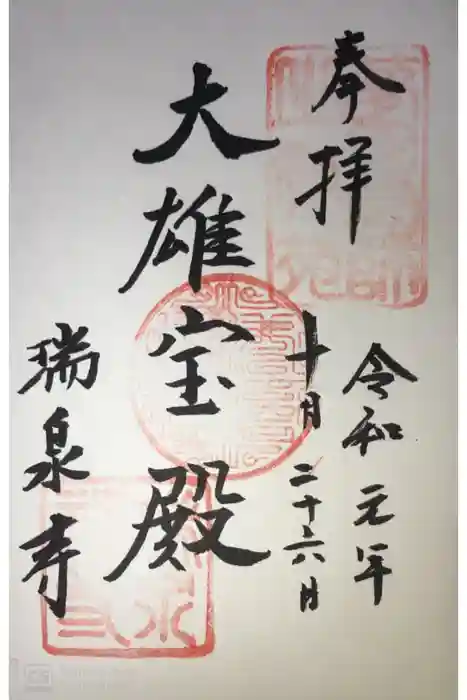 奉拝
令和元年
十月二十六日
大雄宝殿
瑞泉寺